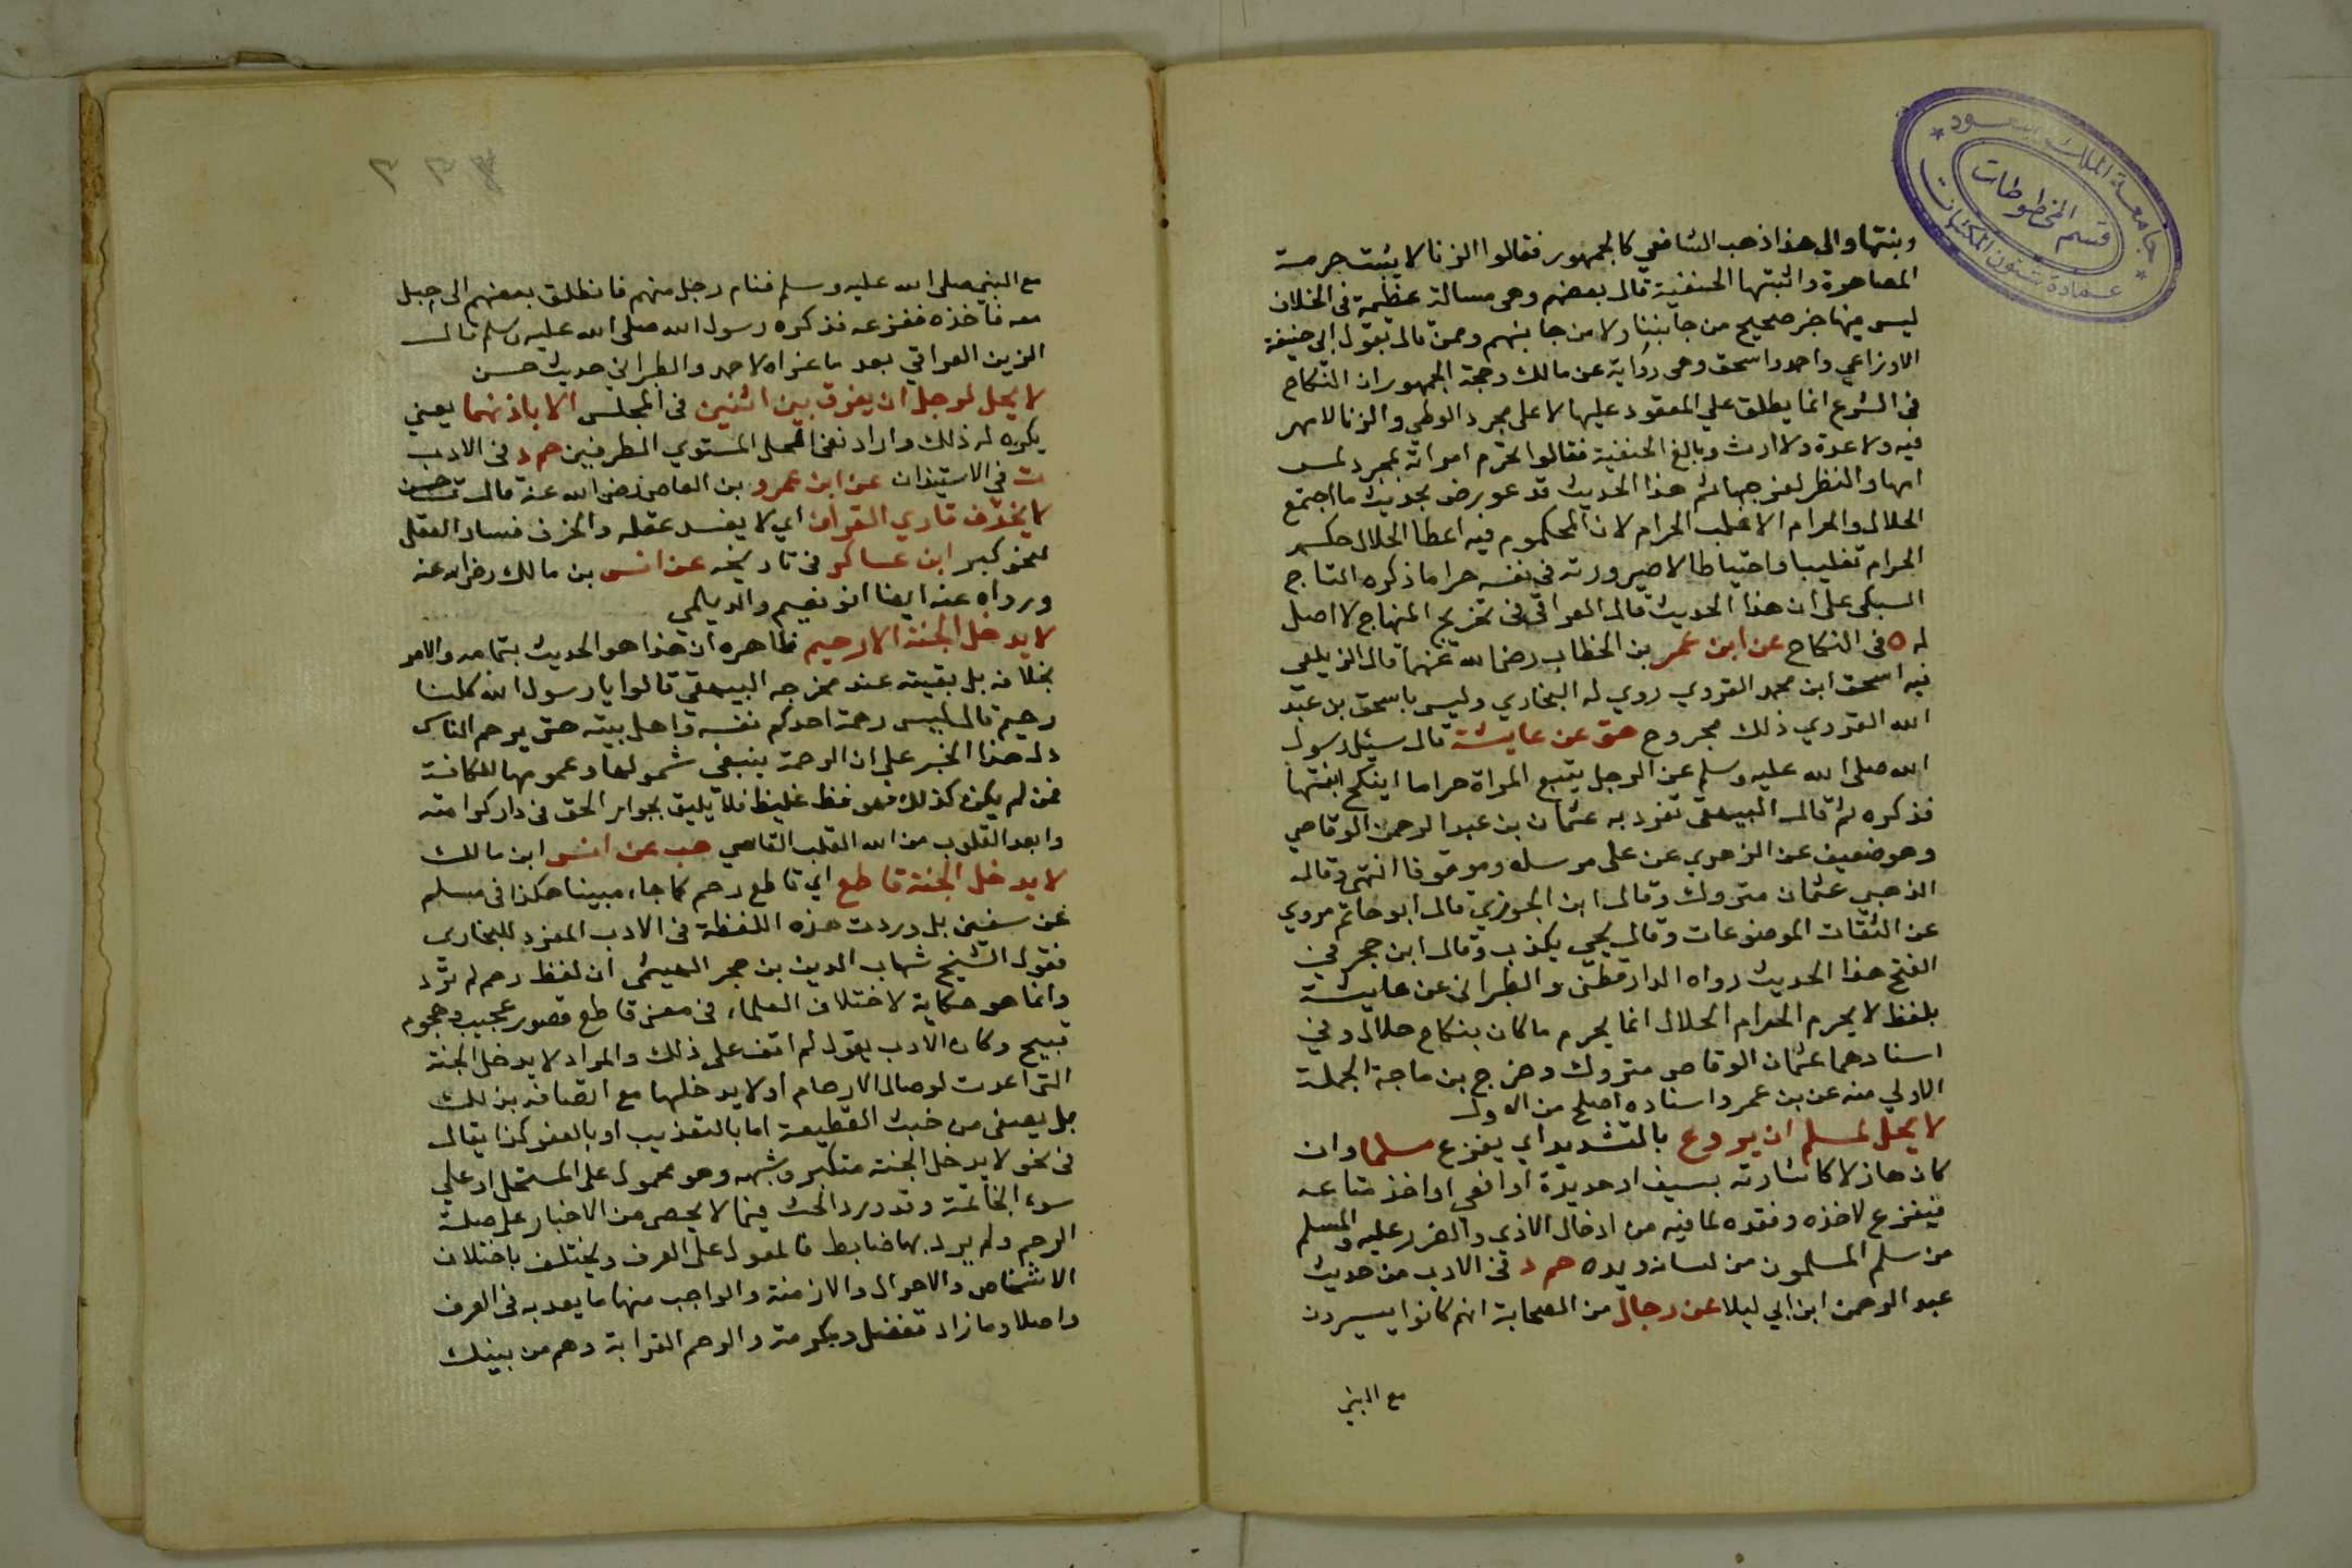 جامعة الملك سعود
قسم المخطوطات
عمادة شئون المكتبات
وبنتها والى هذا ذهب الشافعي كالجمهور فقالوا الزنا لا يثبت حرمة
المصاهرة واثبتها الحنفية قال بعضهم وهى مسالة عظيمة فى الخلاف
ليس فيها خبر صحيح من جانبنا ولا من جانبهم وممن قال بقول ابي حنيفة
الاوزاعي واحمد واسحق وهى رواية عن مالك وحجة الجمهور ان النكاح
فى الشرع انما يطلق علي المعقود عليها لا على مجرد الوطي والزنا لا مهر
فيه ولا عدة ولا ارث وبالغ الحنفية فقالوا تحرم امراته بمجرد لمس
امها والنظر لفرجها ثم هذا الحديث قد عورض بحديث ما اجتمع
الحلال والحرام الا غلب الحرام لان المحكوم فيه اعطا الحلال حكم
الحرام تغليبا واحتياطا لا صيرورته فى نفسه حراما ذكره التاج
السبكى على ان هذا الحديث قال العراقى فى تخريج المنهاج لا اصل
له ه فى النكاح عن ابن عمر بن الخطاب رضى الله عنهما قال الزيلعي
فيه اسحق ابن محمد الفروي روي له البخاري وليس باسحق بن عبد
الله الفروي ذلك مجروح هق عن عايشة قال سيئل رسول
الله صلى الله عليه وسلم عن الرجل يتبع المراة حراما اينكح ابنتها
فذكره ثم قال البيهقى تفرد به عثمان بن عبد الرحمن الوقاصي
وهو ضعيف عن الزهري عن على مرسلا وموقوفا انتهى وقال
الذهبي عثمان متروك وقال ابن الجوزي قال ابو حاتم يروي
عن الثقات الموضوعات وقال يحيي يكذب وقال ابن حجر في
الفتح هذا الحديث رواه الدارقطنى والطبرانى عن عايشة
بلفظ لا يحرم الحرام الحلال انما يحرم ما كان بنكاح حلال وفي
اسنادهما عثمان الوقاص متروك وخرج بن ماجة الجملة
الاولي منه عن بن عمر واسناده اصلح من الاول
لا يحل لمسلم ان يروع بالتشديد اي يفزع مسلما وان
كان هازلا كاشارته بسيف او حديدة او افعى او اخذ متاعه
فيفزع لاخذه وفقده لما فيه من ادخال الاذي والضرر عليه والمسلم
من سلم المسلمون من لسانه ويده حم د فى الادب من حديث
عبد الرحمن ابن ابي ليلا عن رجال من الصحابة انهم كانوا يسيرون
مع النبي
مع النبي صلى الله عليه وسلم فنام رجل منهم فانطلق بعضهم الى حبل
معه فاخذه ففزعه فذكره رسول الله صلى الله عليه وسلم قال
الزين العراقي بعد ما عزاه لاحمد والطبراني حديث حسن
لا يحل لرجل ان يفرق بين اثنين فى المجلس الا باذنهما يعني
يكره له ذلك واراد نفى الحل المستوي الطرفين حم د فى الادب
ت في الاستيذان عن ابن عمرو بن العاص رضى الله عنه قال ت حسن
لا يخرف قاري القرآن اي لا يفسد عقله والخرف فساد العقل
لنحو كبر ابن عساكر فى تاريخه عن انس بن مالك رضى الله عنه
ورواه عنه ايضا ابو نعيم والديلمي
لا يدخل الجنة الا رحيم ظاهره ان هذا هو الحديث بتمامه والامر
بخلافه بل بقيته عند مخرجه البيهقي قالوا يا رسول الله كلنا
رحيم قال ليس رحمة احدكم نفسه واهل بيته حتى يرحم الناس
دل هذا الخبر على ان الرحمة ينبغي شمولها وعمومها للكافة
فمن لم يكن كذلك فهو فظ غليظ فلا يليق بجوار الحق فى دار كرامته
وابعد القلوب من الله القلب القاسي هب عن انس ابن مالك
لا يدخل الجنة قاطع اي قاطع رحم كما جاء مبينا هكذا فى مسلم
عن سفين بل وردت هذه اللفظة فى الادب المفرد للبخارى
فقول الشيخ شهاب الدين بن حجر الهيثمى ان لفظ رحم لم ترد
وانما هو حكاية لاختلاف العلماء فى معنى قاطع قصور عجيب وهجوم
قبيح وكان الادب يقول لم اقف على ذلك والمراد لا يدخل الجنة
التى اعدت لوصال الارحام او لا يدخلها مع اتصافه بذلك
بل يصفى من خبث القطيعة اما بالتعذيب او بالعفو كذا يقال
فى نحو لا يدخل الجنة متكبر وشبهه وهو محمول على المستحل او علي
سوء الخاتمة وقد ورد الحث فيما لا يحصى من الاخبار على صلة
الرحم ولم يرد بها ضابط فالمعول على العرف ويختلف باختلاف
الاشخاص والاحوال والازمنة والواجب منها ما يعد به فى العرف
واصلا وما زاد تفضل ومكرمة والرحم القرابة وهم من بينك